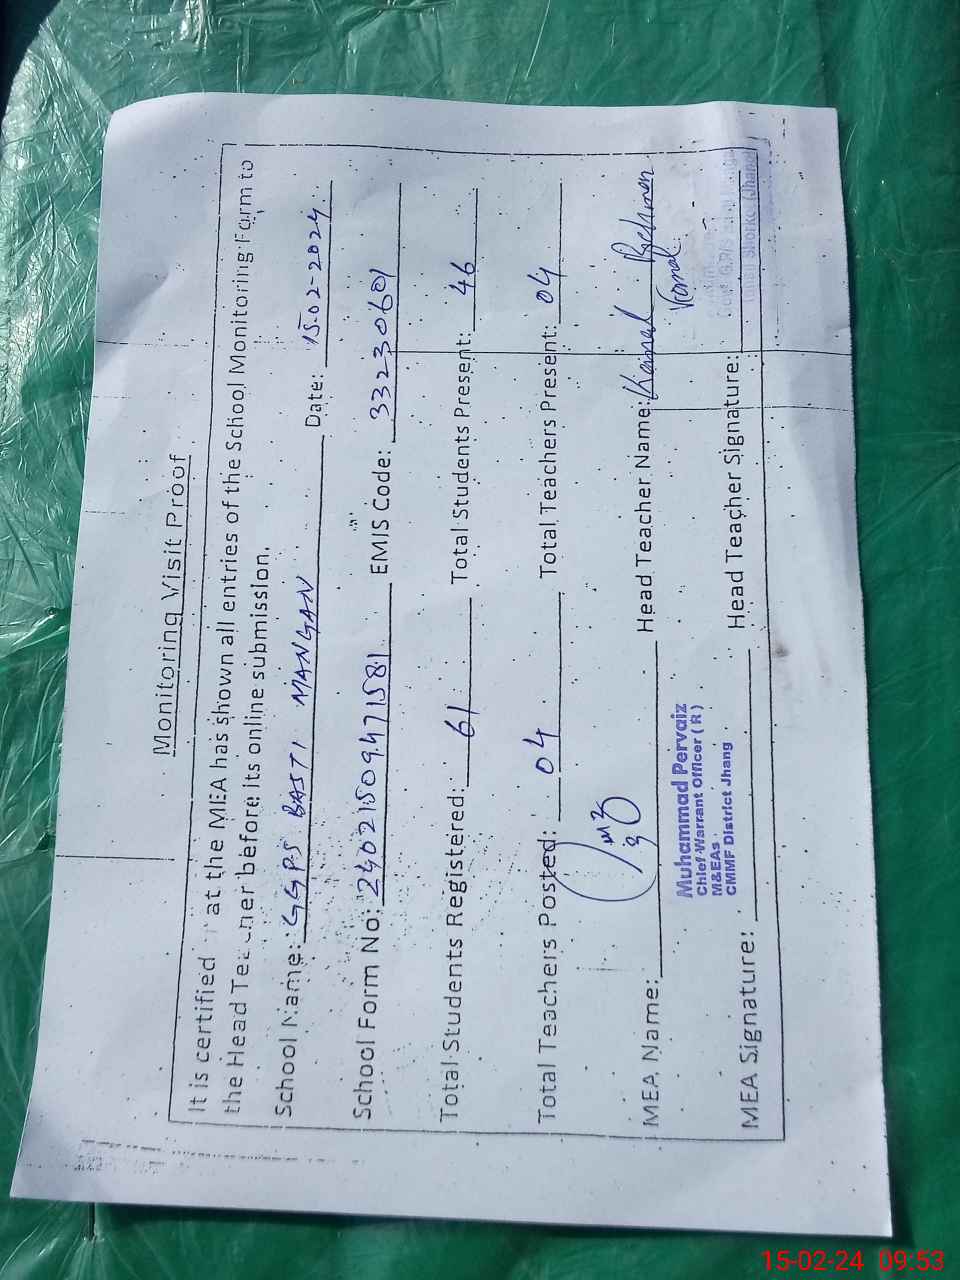 Monitoring Visit Proof
It is certified at the MEA has shown all entries of the School Monitoring Form to
the Head Teacher before its online submission.
School Name: GGPS BASTI MANGAN Date: 15-02-2024
School Form No: 24021509471581 EMIS Code: 33230601
Total Students Registered: 61 Total Students Present: 46
Total Teachers Posted: 04 Total Teachers Present: 04
MEA Name: Head Teacher Name: Kainat Rehman
Muhammad Pervaiz
Chief Warrant Officer ( R )
M&EAs
CMMF District Jhang
MEA Signature: Head Teacher Signature:
15-02-24 09:53